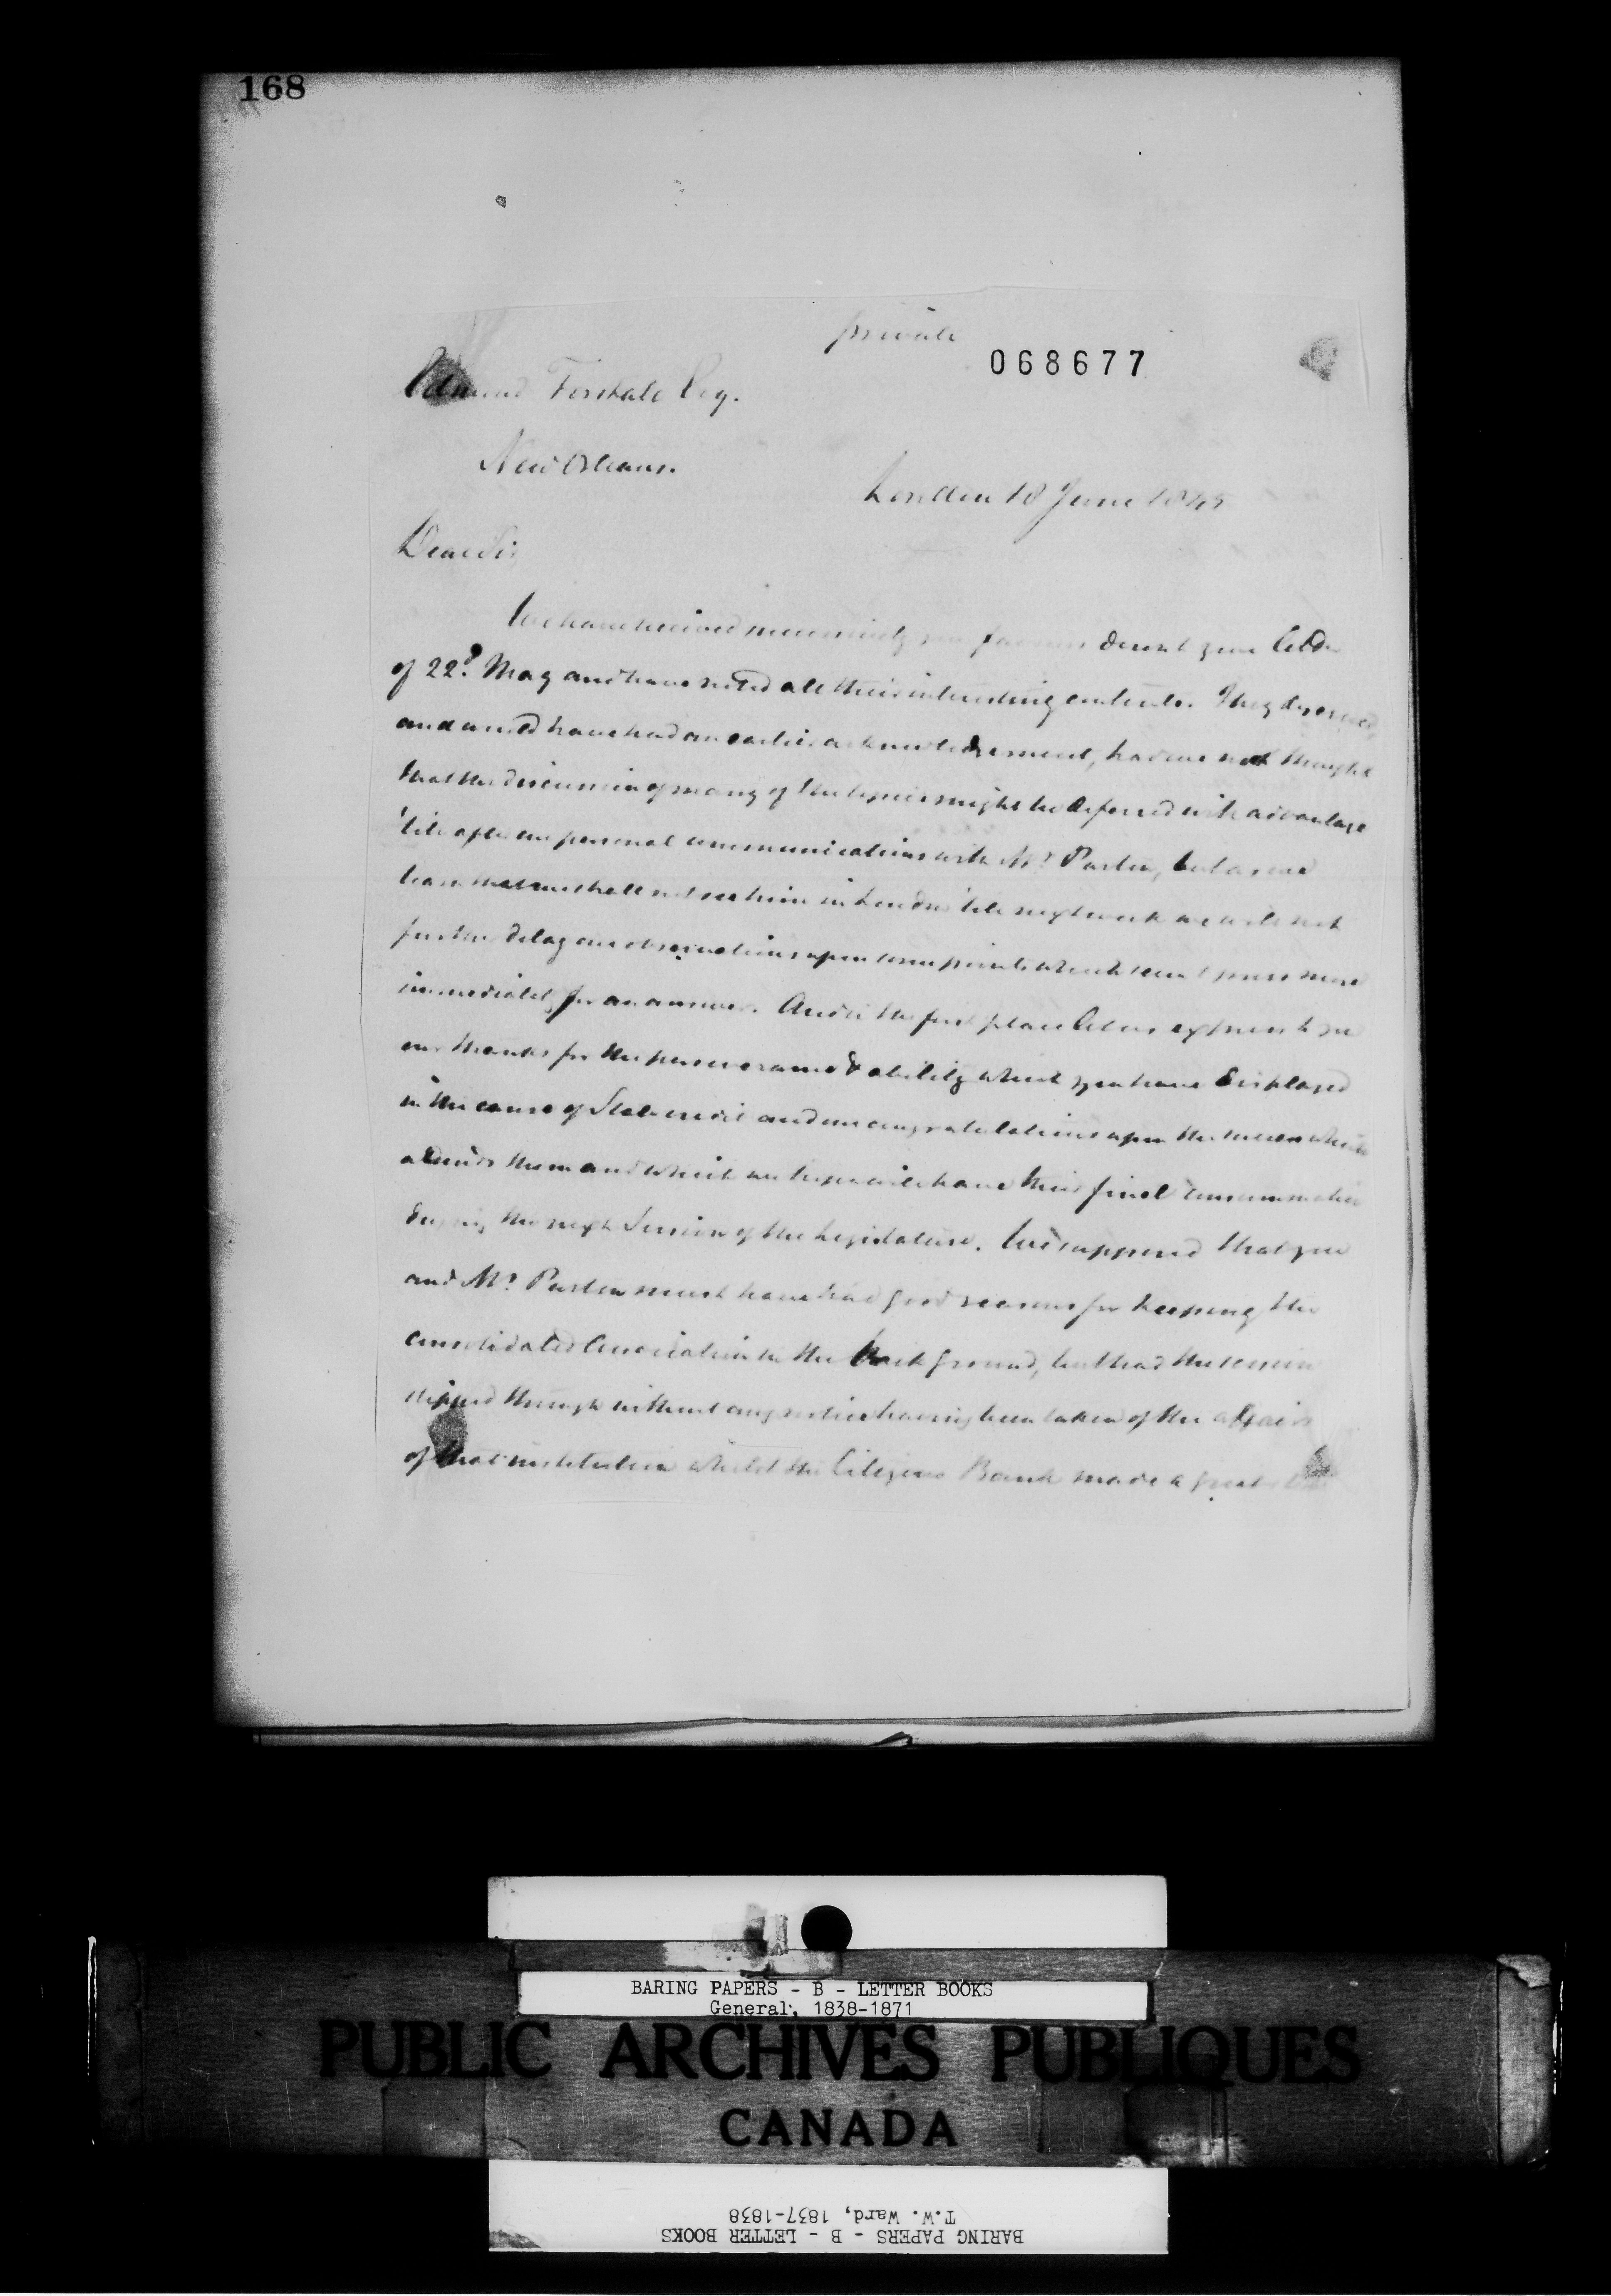 168
private
068677
Edmund Forstall Esq.
New Orleans.
London 18 June 1845
Dear Sir
We have received successively your favours down to your letter
of 22d. May and have noted all their interesting contents. They deserved
and would have had an earlier acknowledgement, had we not thought
that the discussion of many of the topics might be deferred with advantage
'till after our personal communications with Mr. but as we
learn that we shall not see him in London 'till next week we will not
further delay our observations upon some points which seem to press more
immediately for an answer. And in the first place let us express to you
our thanks for the perseverance & ability which you have displayed
in the cause of State credit and our congratulations upon the success which
attends them and which we hope will have their final consummation
during the next Session of the Legislature. We supposed that you
and Mr. must have had good reasons for keeping the
consolidated Association in the back ground, but had the session
slipped through without any notice having been taken of the affairs
of that institution whilst the Citizens Bank made a great
BARING PAPERS - B - LETTER BOOKS
General, 1838-1871
PUBLIC ARCHIVES PUBLIQUES
CANADA
T.W. Ward, 1837-1838
BARING PAPERS - B - LETTER BOOKS